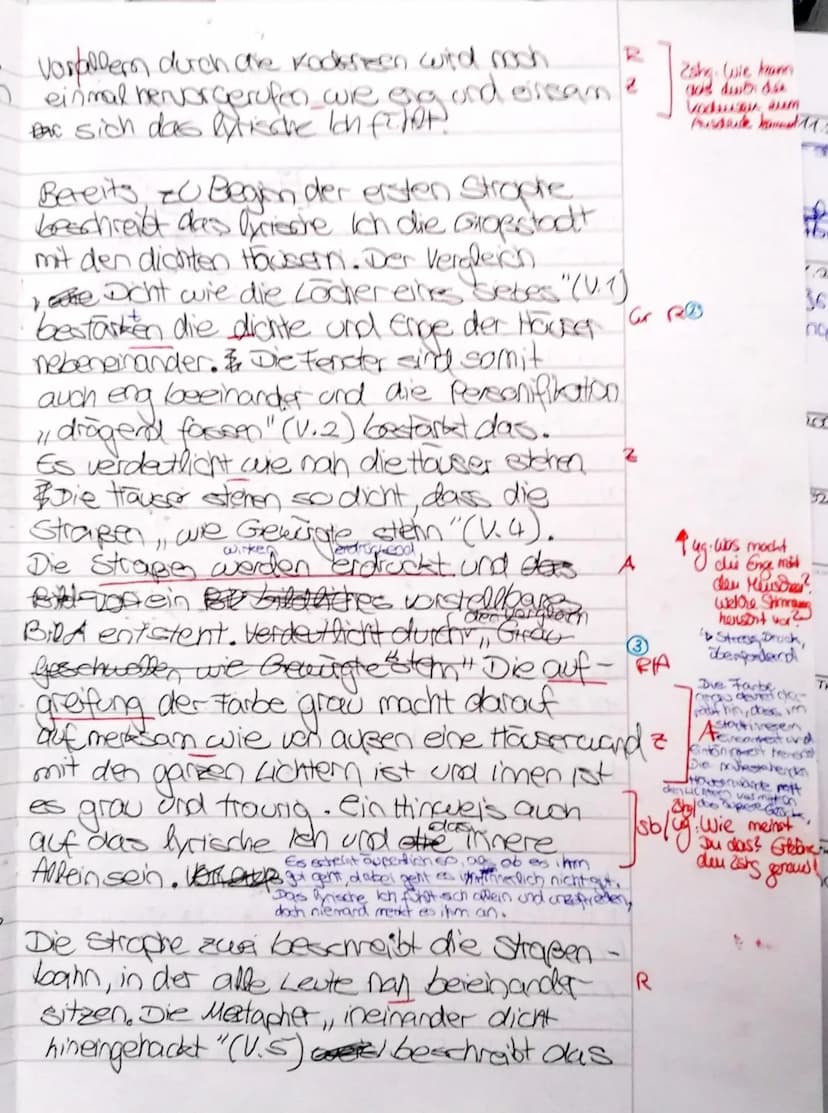 Vorallem durch die Kadenzen wird noch
einmal hervorgerufen wie eng und einsam
sich das lyrische Ich fühlt.
R
Z
Zshg. Wie kann
das durch die
Kadenzen zum
Ausdruck kommen?
Bereits zu Beginn der ersten Strophe
beschreibt das lyrische Ich die Großstadt
mit den dichten Häusern. Der Vergleich
„Dicht wie die Löcher eines Siebes" (V.1)
bestärkten die dichte und Enge der Häuser
Gr R ②
nebeneinander. Die Fenster sind somit
auch eng beeinander und die Personifikation
„drägend fassen" (V.2) bestärkt das.
Es verdeutlicht wie nah die Häuser stehen
Z
Die Häuser stehen so dicht, dass die
Straßen „wie Gewürgte stehn" (V.4).
wirken erdrückend
Die Straßen werden erdrückt und
A
ein vorstellbares
Bild entsteht. Verdeutlicht durch
der Vergleich
ug. Was macht
die Enge mit
den Menschen?
Welche Stimmung
herrscht vor?
↳ Stress, Druck,
überfordernd
③
Die auf-
R/A
greifung der Farbe grau macht darauf
aufmerksam wie von außen eine Häuserwand
Z
mit den ganzen Lichtern ist und innen ist
A
Die Farbe
es grau und traurig. Ein Hinweis auch
auf das lyrische Ich und das innere
Alleinsein.
Sb/ug. Wie meinst
Du das? Erkläre
den Zshg genauer!
Es scheint äußerlich so, als ob es ihm
gut geht, dabei geht es ihm innerlich nicht gut.
Das lyrische Ich fühlt sich allein und unzufrieden,
doch niemand merkt es ihm an.
Die Strophe zwei beschreibt die Straßen-
bahn, in der alle Leute nah beieinander
R
sitzen. Die Metapher „ineinander dicht
hineingehackt" (V.5) beschreibt das